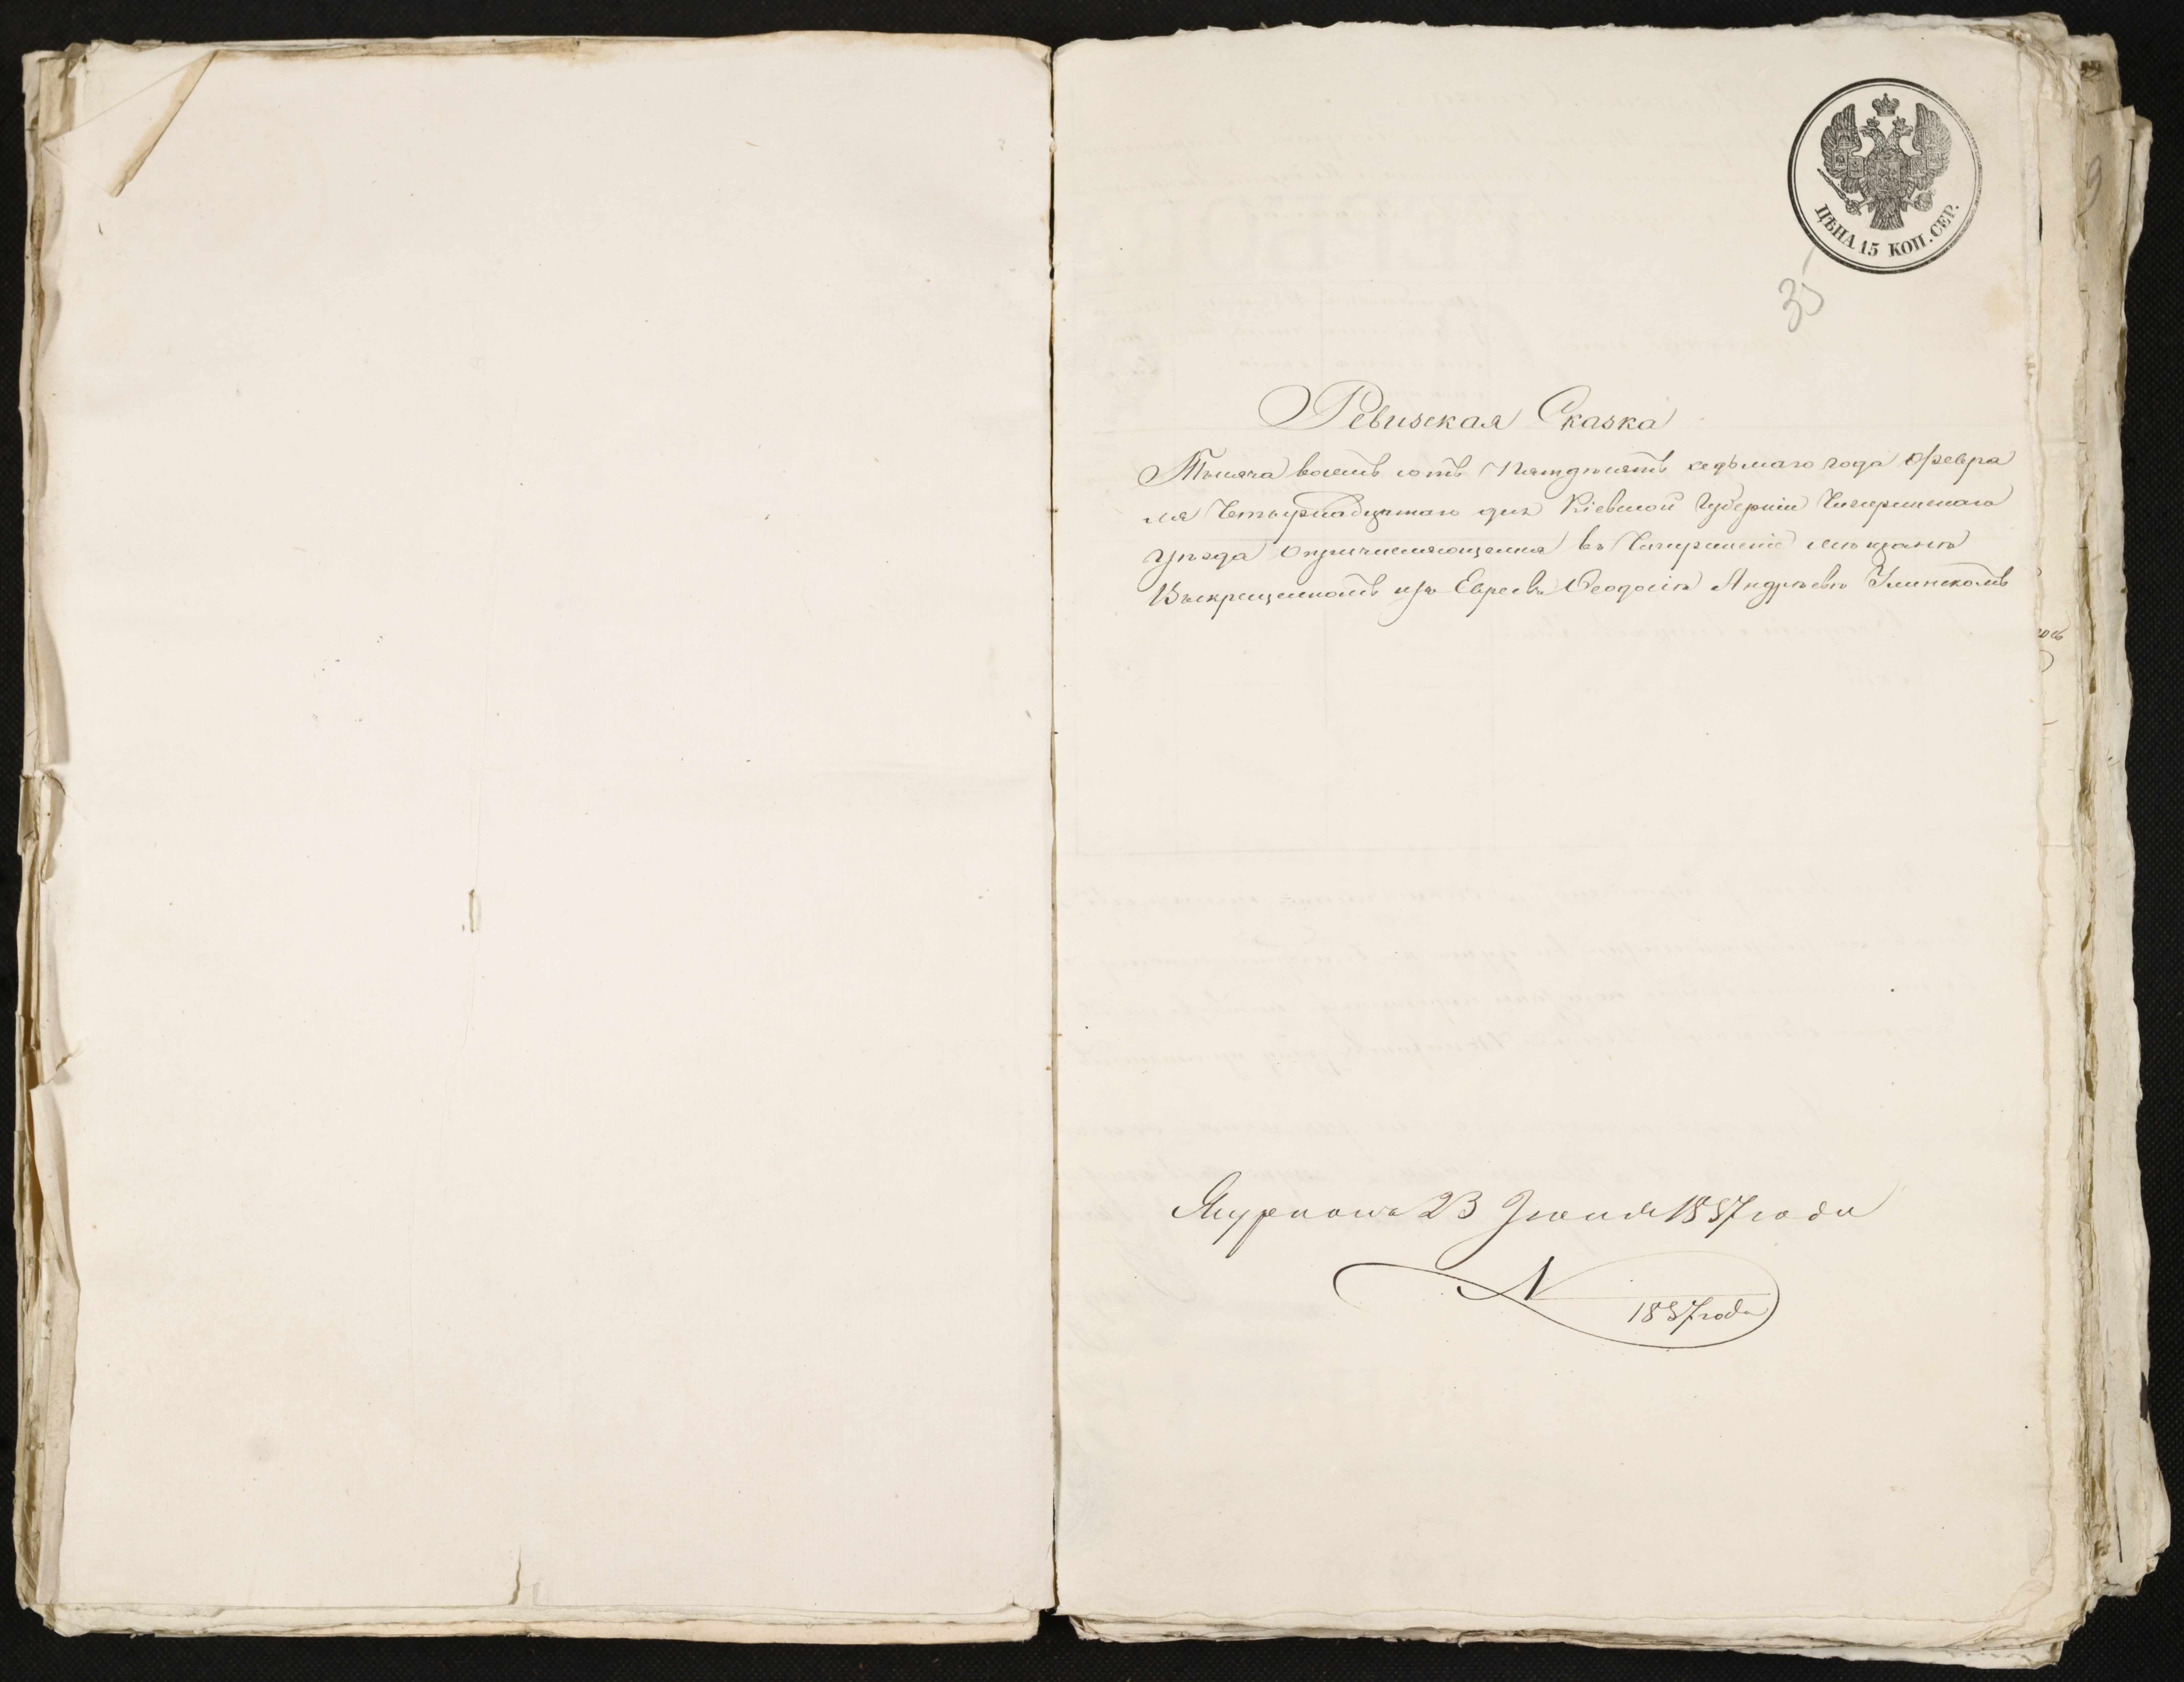 ЦѢНА 15 КОП. СЕР.
35
Ревизская Сказка
Тысяча восемь сотъ Пятдесятъ седьмаго года Февра
ля Четырнадцатаго дня Кіевской Губерніи Чигиринскаго
уѣзда О причисляющемся въ Чигиринскіе мѣщане
Выкрещенномъ изъ Евреевъ Феодосіѣ Андрѣевѣ
23 Іюня 1857 года
N
1857 года